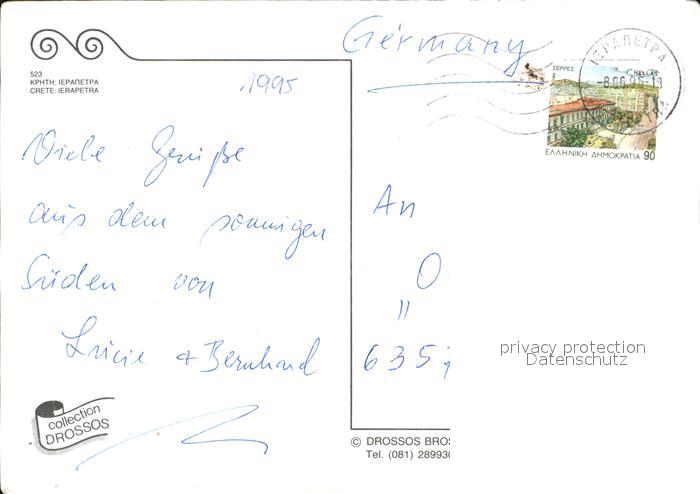 Germany
523
ΚΡΗΤΗ: ΙΕΡΑΠΕΤΡΑ
CRETE: IERAPETRA
1995
ΣΕΡΡΕΣ
HELLAS
ΙΕΡΑΠΕΤΡΑ
-8.06.95-13
ΕΛΛΗΝΙΚΗ ΔΗΜΟΚΡΑΤΙΑ 90
Viele Grüße
aus dem sonnigen
Süden von
Lucie + Bernhard
An
O
"
635
privacy protection
Datenschutz
collection
DROSSOS
© DROSSOS BROS
Tel. (081) 289930